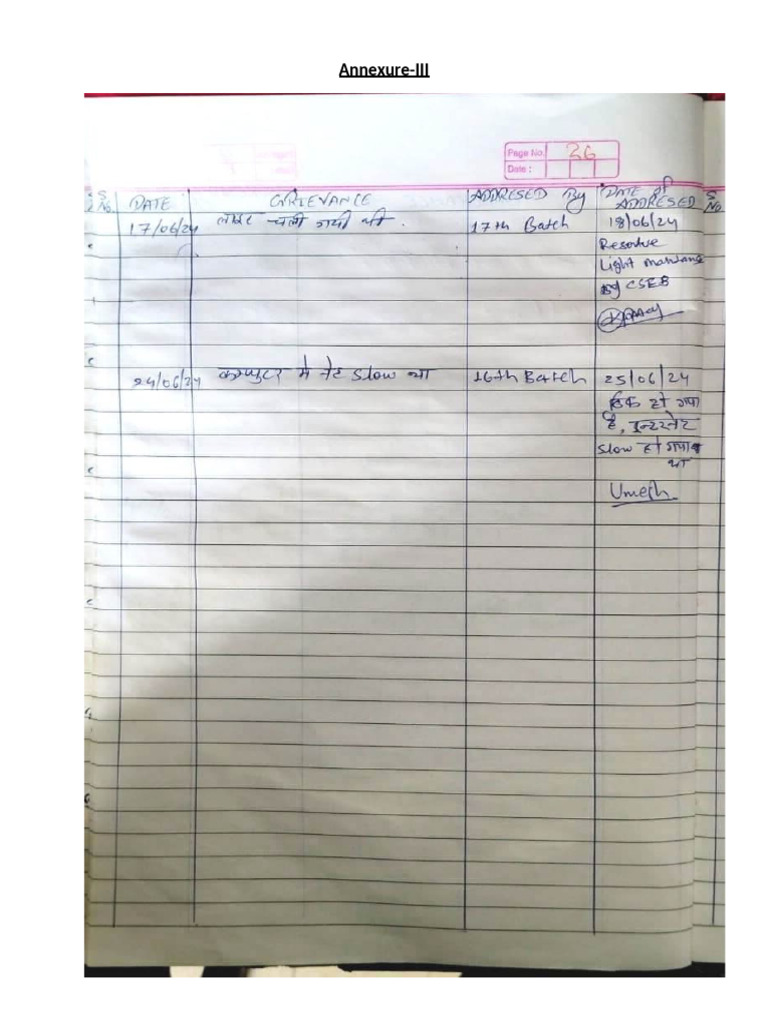 Annexure-III
Page No. 26
Date :
S No. DATE GRIEVANCE ADDRESED By DATE of ADDRESED S No
17/06/24 लाइट चली गयी थी . 17th Batch 18/06/24
Resolve
Light
by CSEB
24/06/24 कम्प्युटर मे नेट slow था 16th Batch 25/06/24
ठिक हो गया
है, इन्टरनेट
slow हो गया
था
Umesh